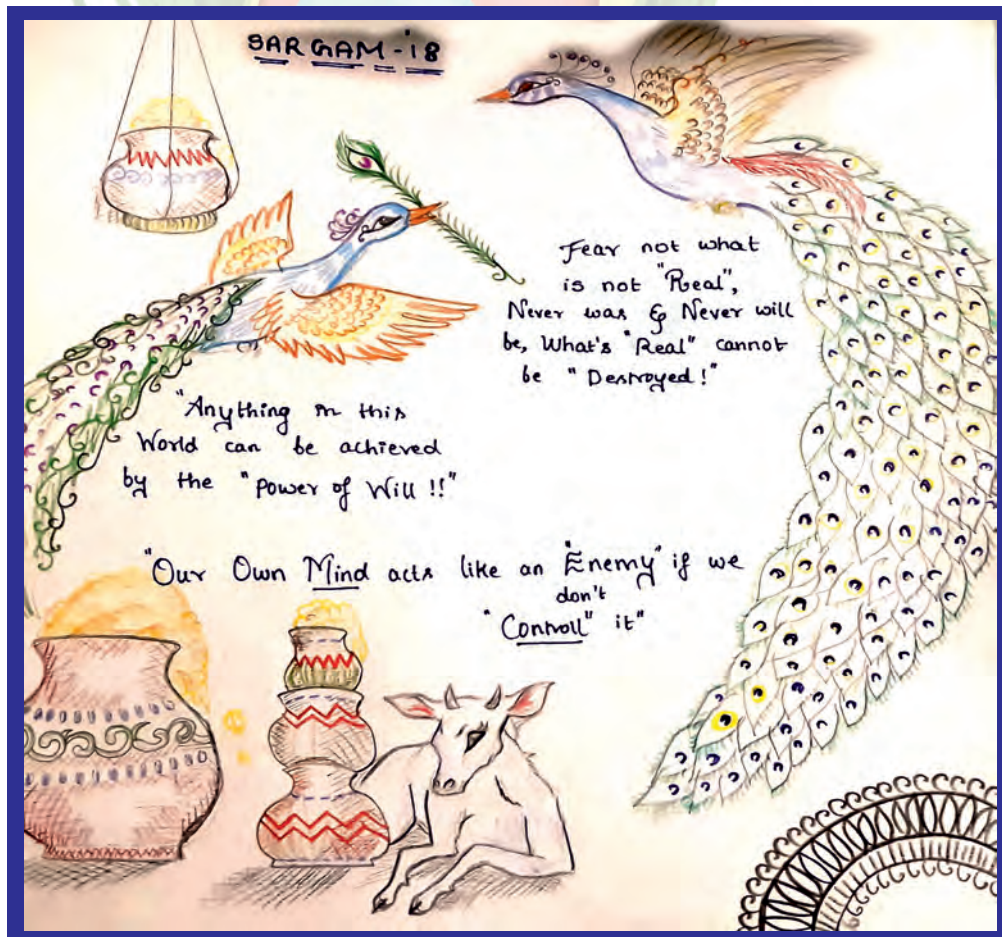 SARGAM-'18
Fear not what
is not "Real",
Never was & Never will
be, What's "Real" cannot
be "Destroyed!"
"Anything in this
World can be achieved
by the "Power of Will !!"
"Our Own Mind acts like an "Enemy" if we
don't
"Controll" it"